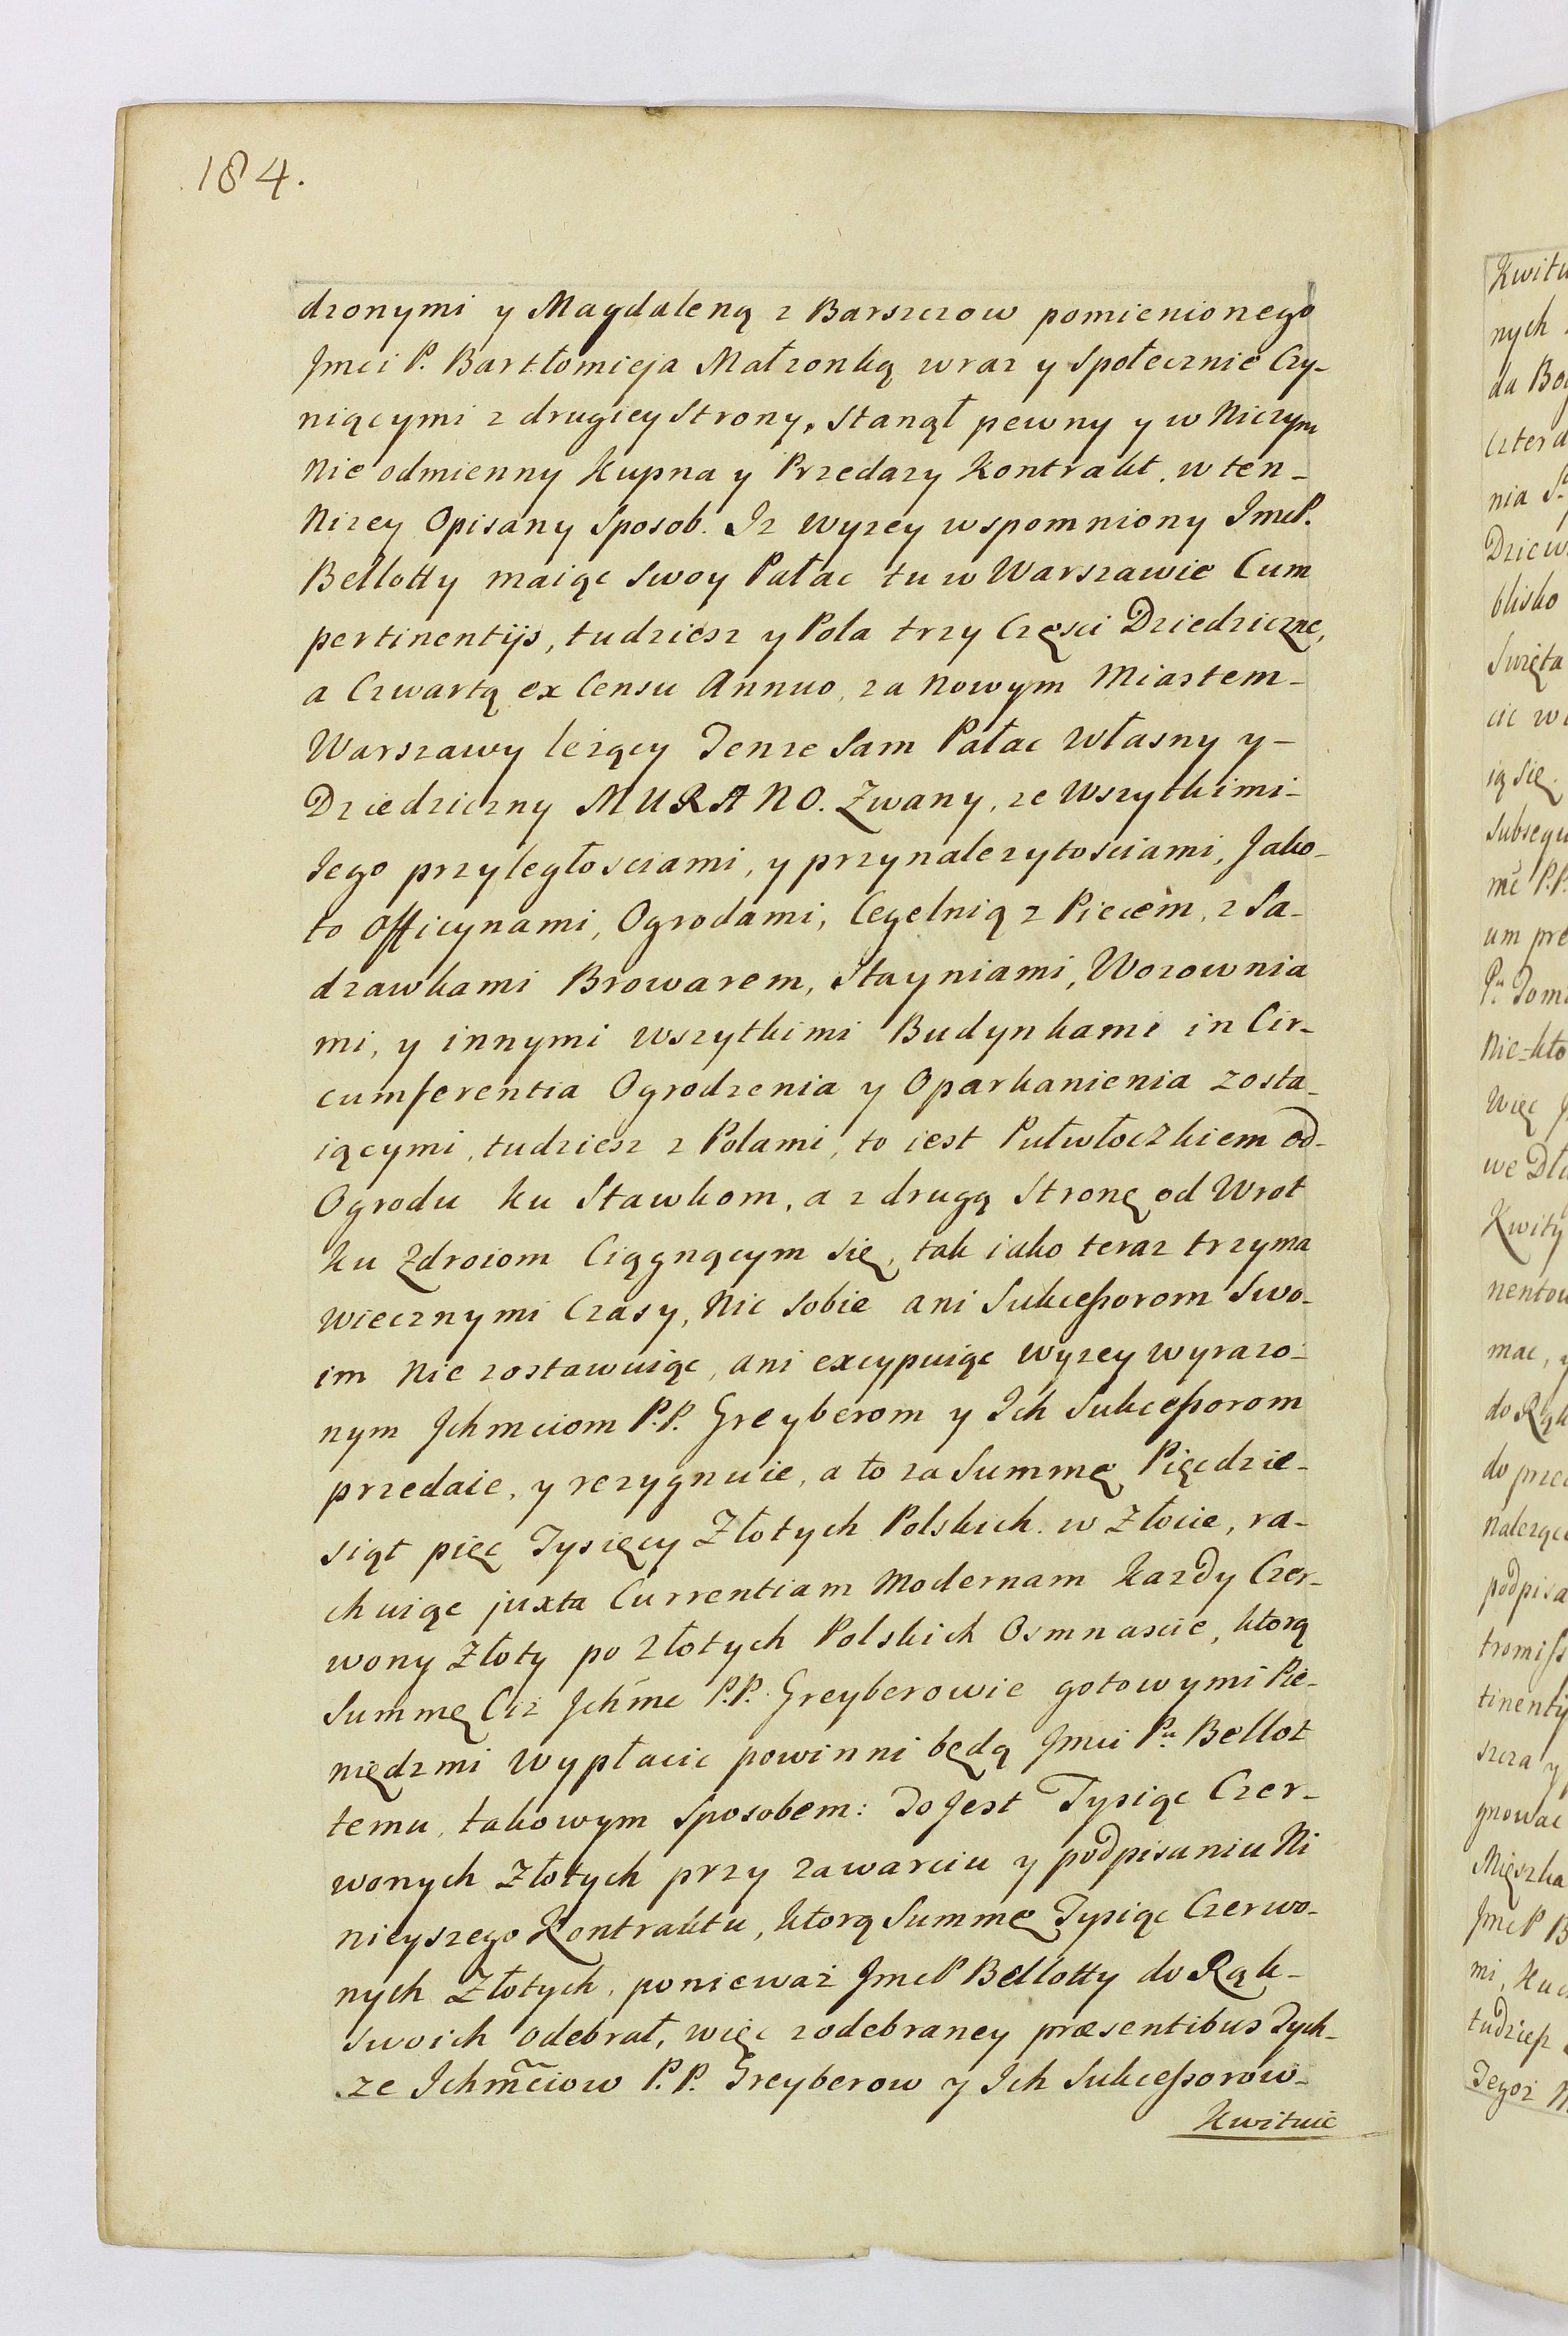 184.
dzonymi y Magdaleną z Barszczow pomienionego
Jmci P. Bartłomieja Małzonką wraz y społecznie Czy-
niącymi z drugiey Strony, stanął pewny y w Niczym
Nie odmienny Kupna y Przedazy Kontrakt, w ten-
Nizey Opisany Sposob. Iz wyzey wspomniony JmcP.
Bellotty maiąc Swoy Pałac tu w Warszawie Cum
pertinentijs, tudziesz y Pola trzy Częsci Dziedziczne,
a Czwartą ex Censu Annuo, za Nowym Miastem-
Warszawy leżący Tenze Sam Pałac Własny y-
Dziedziczny MURANO. Zwany, ze Wszytkimi-
Iego przyległosciami, y przynalezytosciami, Jako-
to Officynami, Ogrodami, Cegelnią z Piecem, z Sa-
dzawkami Browarem, Stayniami, Wozownia
mi, y innymi wszytkimi Budynkami in Cir-
cumferentia Ogrodzenia y Oparkanienia zosta-
iącymi, tudziesz z Polami, to iest Pułwłoczkiem od-
Ogrodu ku Stawkom, a z drugą Stronę od Wrot
ku Zdroiom Ciągnącym się, tak iako teraz trzyma
wiecznymi Czasy, Nic sobie ani Sukcessorom Swo-
im Nie zostawuiąc, ani excypuiąc wyzey wyrazo-
nym Jchmciom P.P. Greyberom y Ich Sukcessorom
przedaie, y rezygnuie, a to za Summę Pięcdzie-
siąt pięc Tysięcy Złotych Polskich. w Złocie, ra-
chuiąc juxta Currentiam Modernam kazdy Czer-
wony Złoty po Złotych Polskich Osmnascie, ktorą
Summę Ciz Jchmc P.P. Greyberowie gotowymi Pie-
niędzmi Wypłacic powinni będą Jmci Pu Bellot
temu, takowym Sposobem: To Jest Tysiąc Czer-
wonych Złotych przy zawarciu y podpisaniu Ni
nieyszego Kontraktu, ktorą Summę Tysiąc Czerwo-
nych Złotych, ponieważ JmcP Bellotty do Rąk-
swoich odebrał, więc zodebraney præsentibus Tych-
ze Ichmciow P.P. Greyberow y Ich Sukcessorow-
Kwituie
Kwitu
nych
da Bo
czter
nia
Dziew
blisko
Swięta
cic w
ią się
Subsequ
mc P.P.
um pre
Nie-kto
Więc
we
Kwity
nentow
mac,
do Rąk
do prze
Nalezące
podpisa
tromiss
tinentij
szcza y
gnowac
Mięszka
JmcP B
mi,
tudziesz
Tegoż